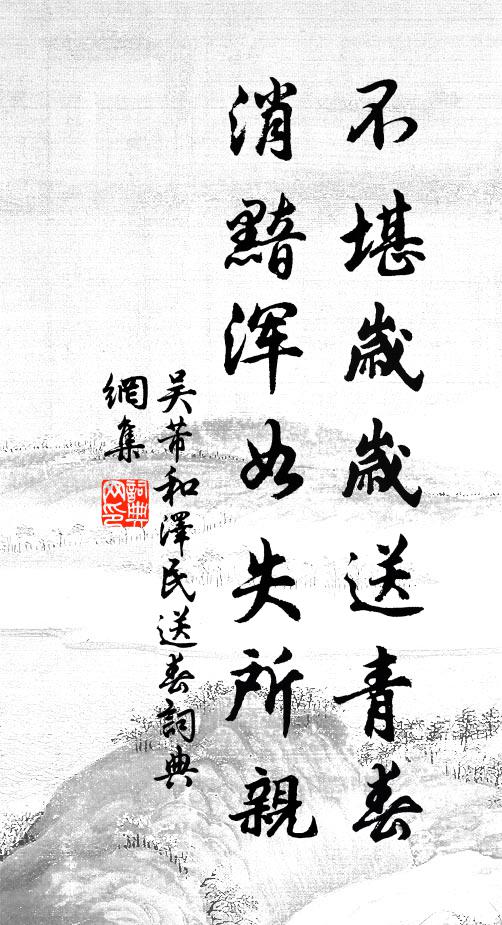 不堪歲歲送青春
消黯渾如失所親
吳芾和澤民送春詞典
網集
詞典
网印